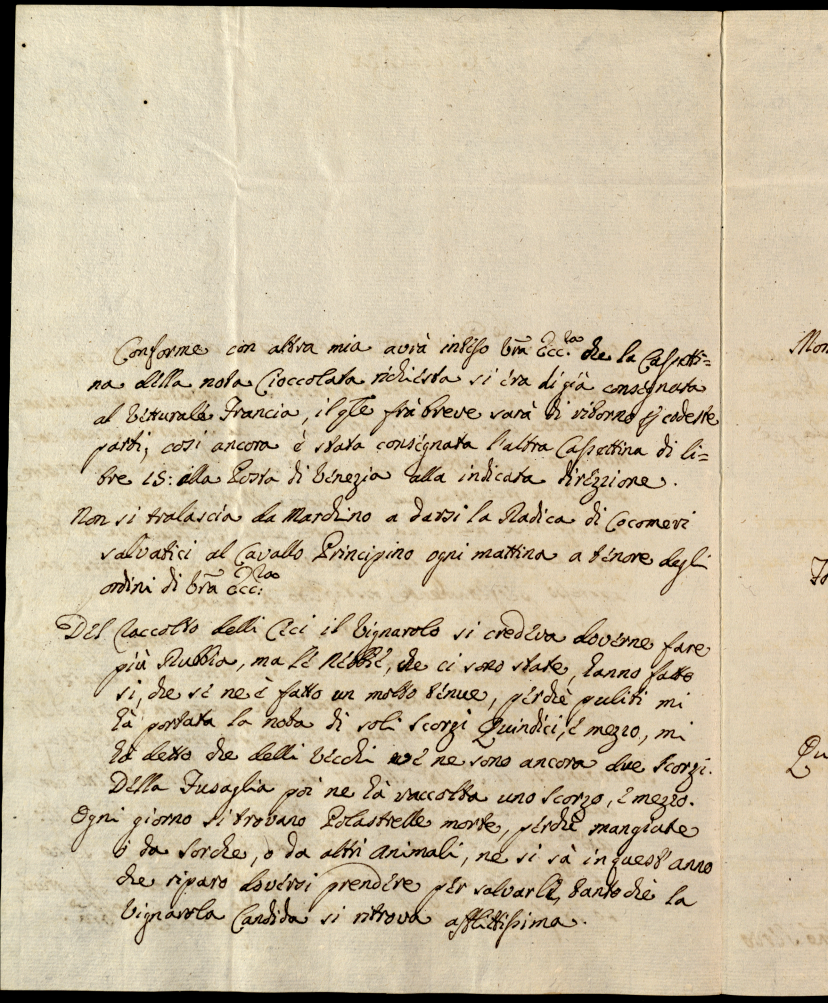 Conforme con altra mia avrà inteso Vrã Ecc.za che la Cassetti=
na della nota Cioccolata richiesta si era di già consegnata
al Vetturale Francia, il qle frà breve sarà di ritorno p codeste
parti, così ancora è stata consegnata l'altra Cassettina di li=
bre 15: alla Posta di Venezia alla indicata direzzione.
Non si tralascia da Marchino a darsi la Radica di Cocomeri
salvatici al Cavallo Principino ogni mattina a tenore degli
ordini di Vrã Ecc.za
Del Raccolto delli Ceci il Vignarolo si credeva doverne fare
più Rubbia, ma le Nebbie, che ci sono state, hanno fatto
si, che se ne è fatto un molto tenue, perchè puliti mi
hà portata la nota di soli scorzi Quindici, e mezzo, mi
hà detto che delli vecchi ve ne sono ancora due scorzi.
Della Fusaglia poi ne hà raccolta uno scorzo, e mezzo.
Ogni giorno si trovano Polastrelle morte, perchè mangiate
ò da sorche, o da altri animali, ne si sà in quest'anno
che riparo doversi prendere per salvarle, tanto che la
Vignarola Candida si ritrova afflittissima.
Mon
Qu